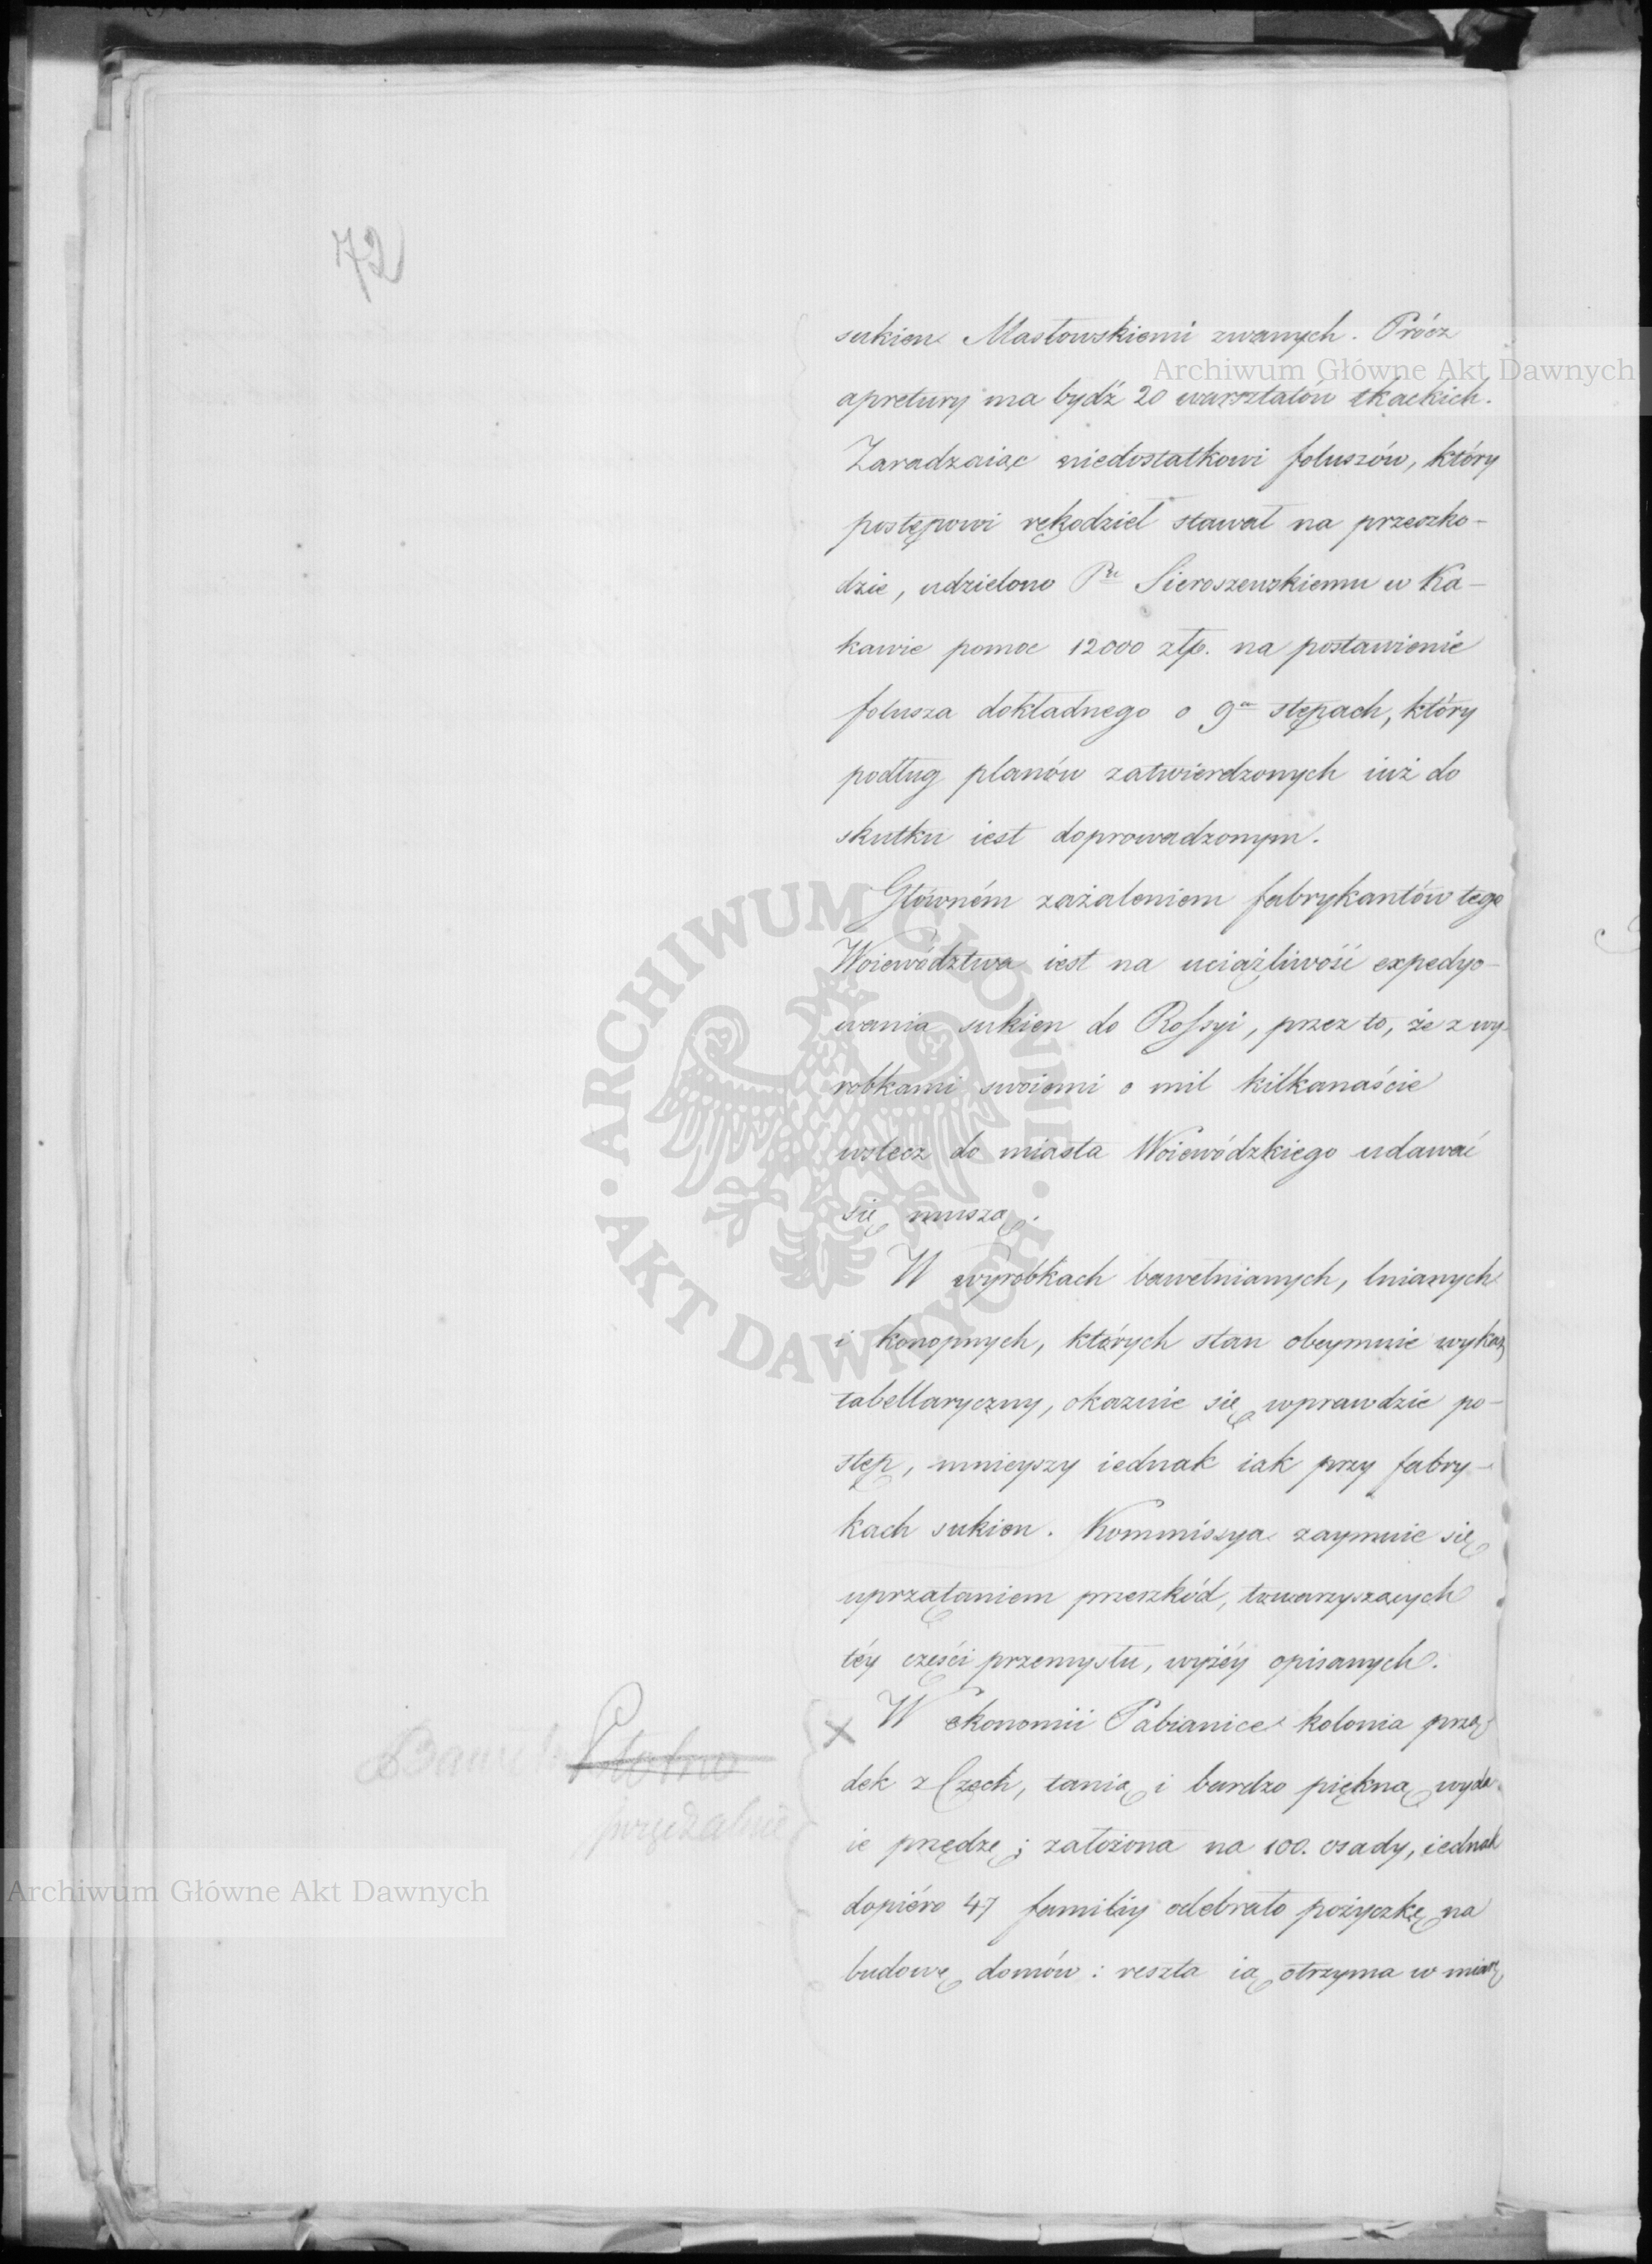 72
sukien Masłowskiemi zwanych. Prócz
apretury ma bydź 20 warsztatów tkackich.
Zaradzaiąc niedostatkowi foluszów, który
postępowi rękodzieł stawał na przeszko-
dzie, udzielono Pu Sieroszewskiemu w Ka-
kawie pomoc 12000 złp. na postawienie
folusza dokładnego o 9u stępach, który
podług planów zatwierdzonych iuż do
skutku iest doprowadzonym.
Główném zażaleniem fabrykantów tego
Woiewództwa iest na uciążliwość expedyo-
wania sukien do Rossyi, przez to, że z wy-
robkami swoiemi o mil kilkanaście
wstecz do miasta Woiewódzkiego udawać
się muszą.
W wyrobkach bawełnianych, lnianych
i konopnych, których stan obeymuie wykaz
tabellaryczny, okazuie się wprawdzie po-
stęp, mnieyszy iednak iak przy fabry-
kach sukien. Kommissya zaymuie się
uprzątaniem przeszkód, towarzyszących
téy części przemysłu, wyżéy opisanych.
W ekonomii Pabianice kolonia przą-
dek z Czech, tanią i bardzo piękną wyda-
ie przędzę; założona na 100. osady, iednak
dopiéro 47 familiy odebrało pożyczkę na
budowę domów: reszta ią otrzyma w miarę
Płótno
przędzalnie
Archiwum Główne Akt Dawnych
Archiwum Główne Akt Dawnych
ARCHIWUM GŁÓWNE
AKT DAWNYCH